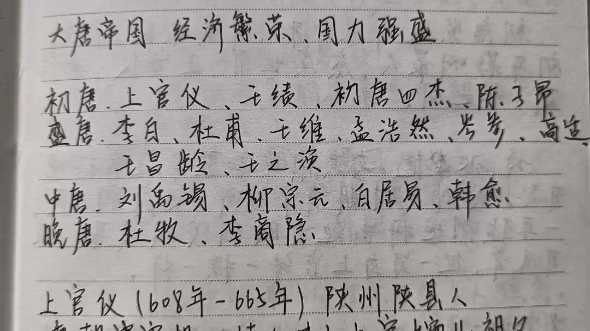 大唐帝国 经济繁荣、国力强盛
初唐.上官仪、王绩、初唐四杰、陈子昂
盛唐.李白、杜甫、王维、孟浩然、岑参、高适、
王昌龄、王之涣
中唐.刘禹锡、柳宗元、白居易、韩愈
晚唐.杜牧、李商隐
上官仪(608年-665年)陕州陕县人